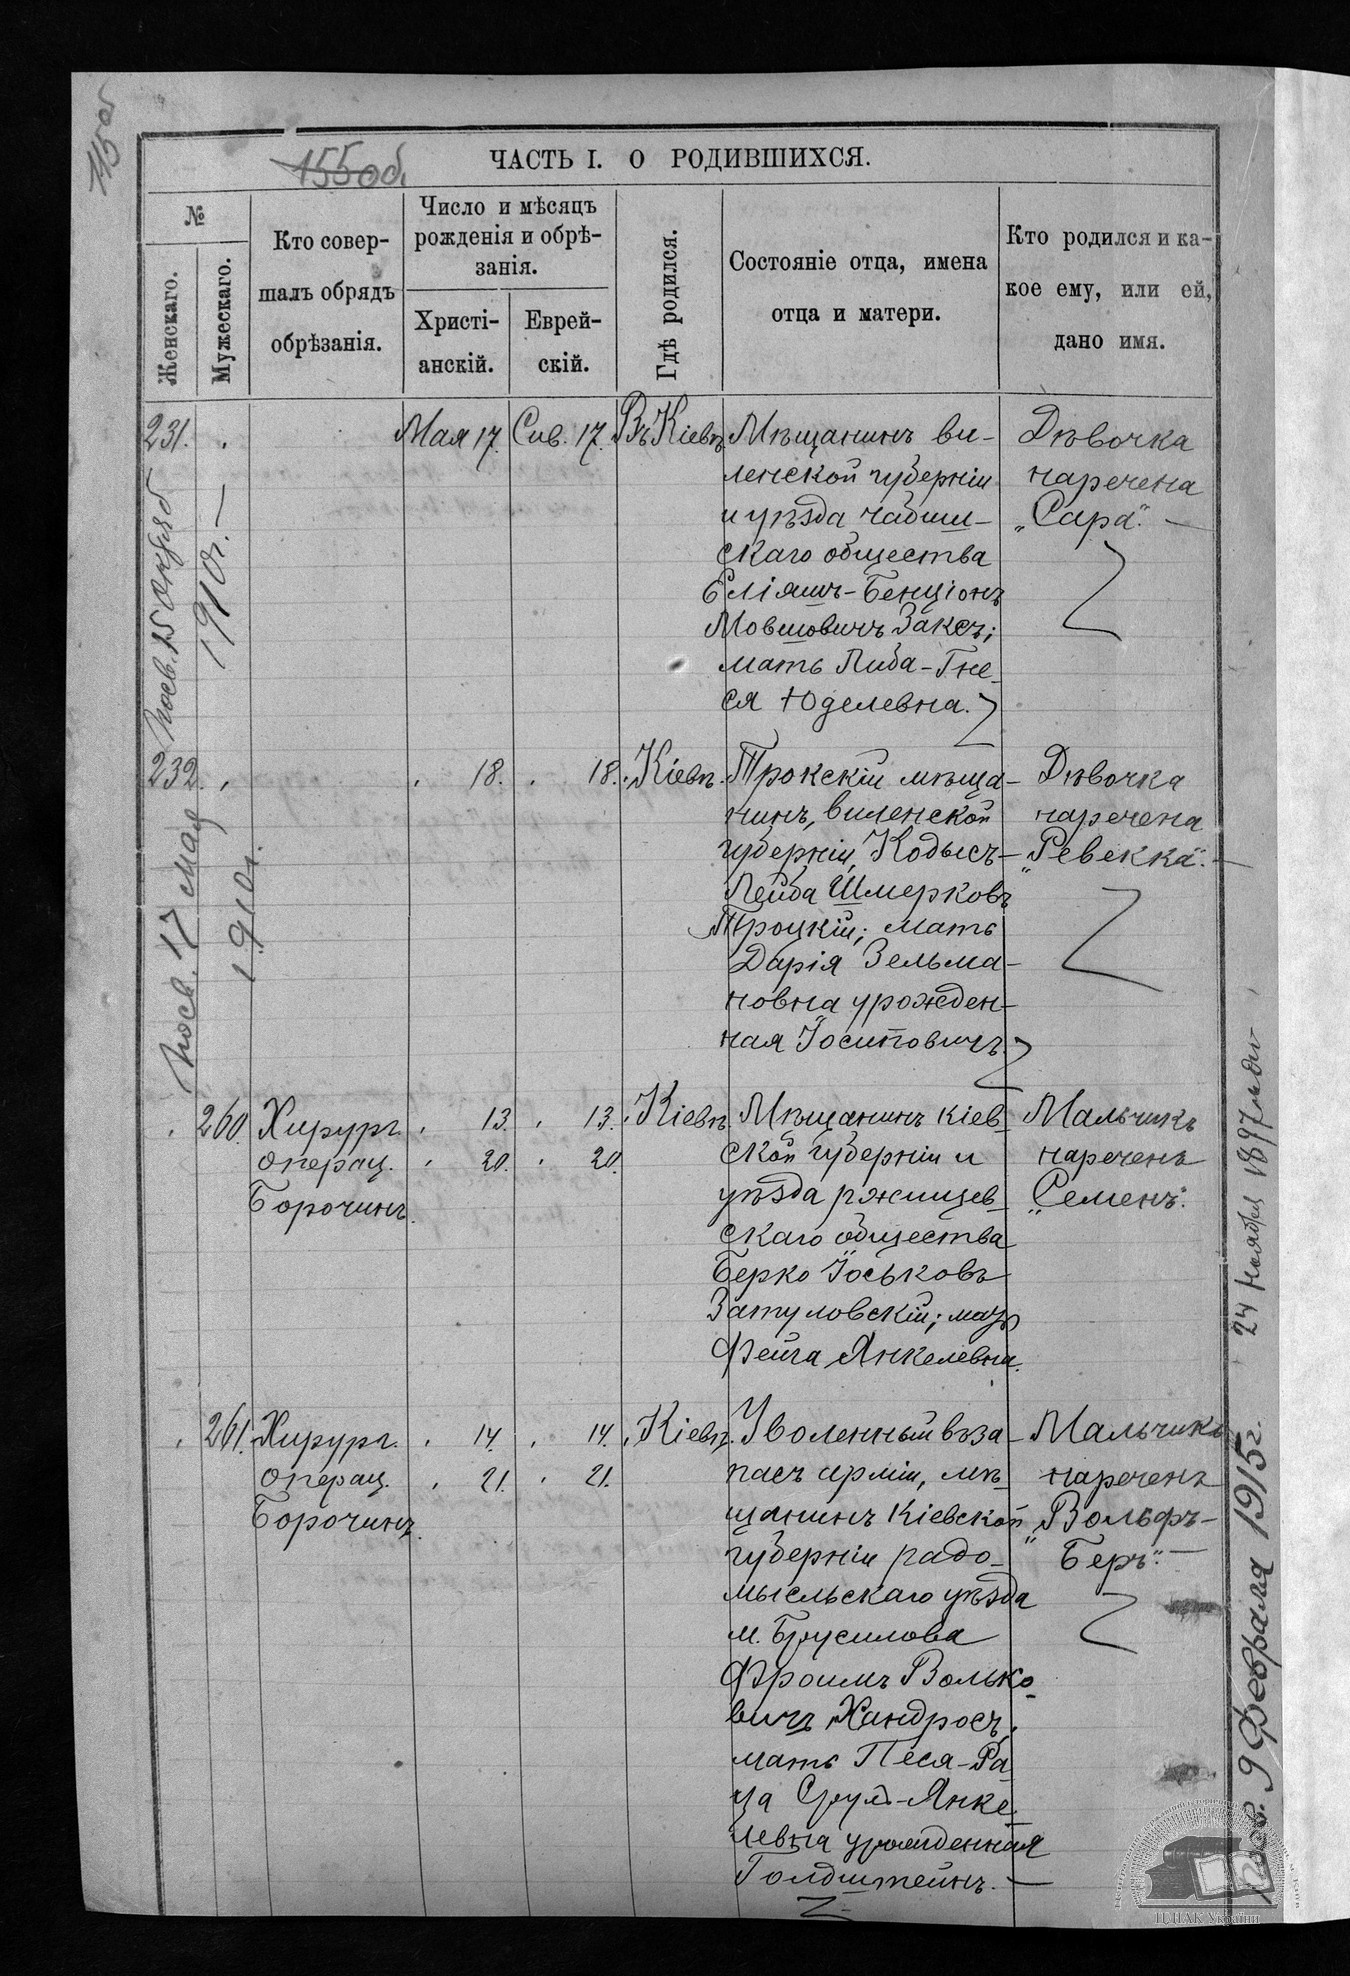 115об
155об.
ЧАСТЬ I. О РОДИВШИХСЯ.
№
Женскаго.
Мужескаго.
Кто совер-
шалъ обрядъ
обрѣзанія.
Число и мѣсяцъ
рожденія и обрѣ-
занія.
Христі-
анскій.
Еврей-
скій.
Гдѣ родился.
Состояніе отца, имена
отца и матери.
Кто родился и ка-
кое ему, или ей,
дано имя.
231.
Мая 17.
Сив. 17.
Въ Кіевѣ
Мѣщанинъ ви-
ленской губерніи
и уѣзда
скаго общества
Еліяшъ-Бенціонъ
Мовшовичъ Заксъ;
мать Либа-Гне-
ся Юделевна.
Дѣвочка
наречена
„Сара“. —
232.
18.
18.
Кіевѣ.
Трокскій мѣща-
нинъ, виленской
губерніи, Кодысъ-
Лейба Шмерковъ
Троцкій; мать
Дарія Зельма-
новна урожден-
ная Іосиповичъ.
Дѣвочка
наречена
„Ревекка“. —
1910г. —
17 мая
1910г.
260.
Хирург.
операц.
Борочинъ.
13.
20.
13.
20.
Кіевѣ.
Мѣщанинъ кіев-
ской губерніи и
уѣзда ржищев-
скаго общества
Берко Іоськовъ
Затуловскій; мать
Фейга Янкелевна.
Мальчикъ
нареченъ
„Семенъ“.
261.
Хирург.
операц.
Борочинъ.
14.
21.
14.
21.
Кіевѣ.
Уволенный въ за-
пасъ арміи, мѣ-
щанинъ Кіевской
губерніи радо-
мысльскаго уѣзда
м. Брусилова
Фроимъ Волько-
вичъ Хандросъ,
мать Песя-Ра-
Срул-Янке-
левна урожденная
Голдштейнъ. —
Мальчикъ
нареченъ
„Вольфъ-
Беръ“. —
24 Ноября 1897
9 Февраля 1915г.
ЦДІАК України